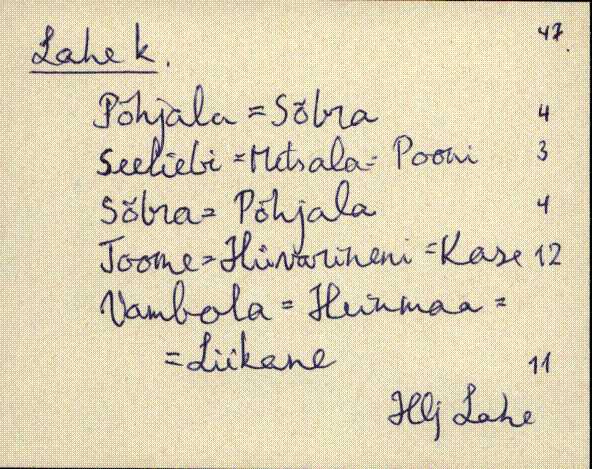 47.
Lahe k.
Põhjala = Sõbra 4
Seeliebi = Metsala = Pooni 3
Sõbra = Põhjala 4
Toome = Hüvärineni = Kase 12
Vambola = Heinmaa =
= Liikane 11
Hlj Lahe